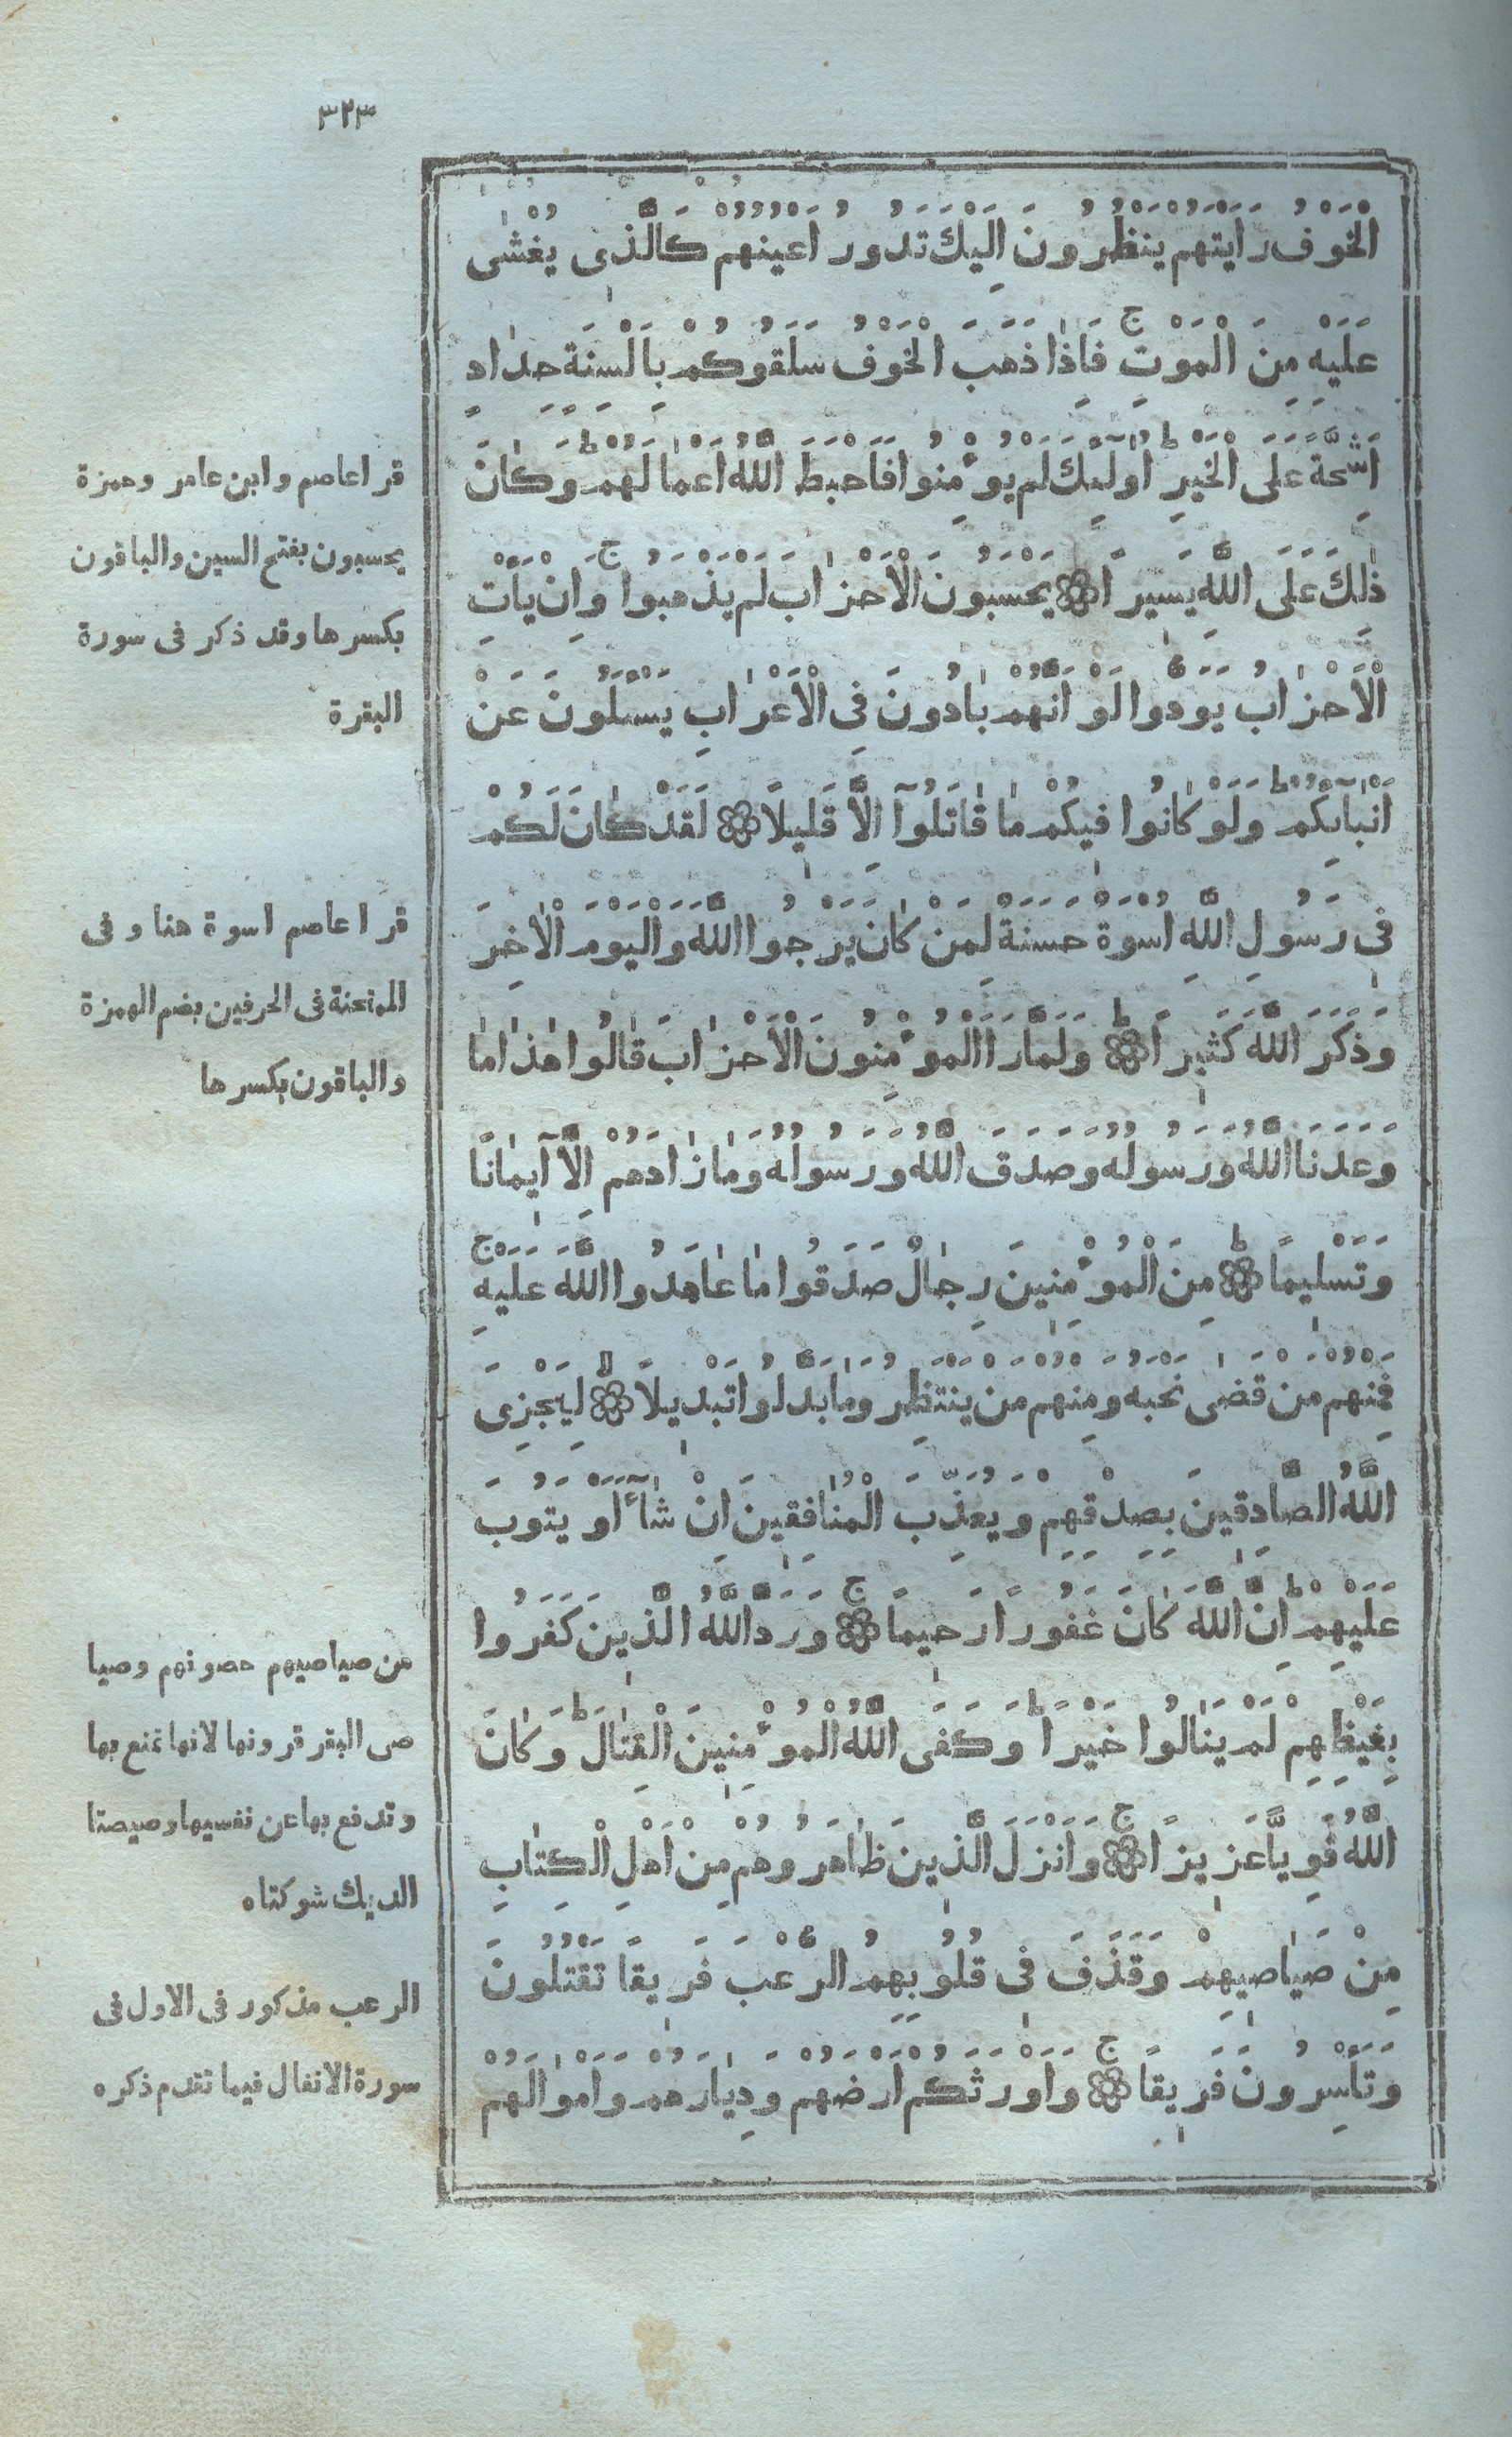 ٣٢٣
الْخَوْفُ رَاَيْتَهُمْ يَنْظُرُونَ اِلَيْكَ تَدُورُ اَعْيُنُهُمْ كَالَّذٖى يُغْشٰى
عَلَيْهِ مِنَ الْمَوْتِ ۚ فَاِذٰا ذَهَبَ الْخَوْفُ سَلَقُوكُمْ بِاَلْسِنَةٍ حِدٰادٍ
اَشِحَّةً عَلَى الْخَيْرِ ؕ اُولٰٓئِكَ لَمْ يُؤْمِنُوا فَاَحْبَطَ اللّٰهُ اَعْمٰالَهُمْ ؕ وَكٰانَ
ذٰلِكَ عَلَى اللّٰهِ يَسٖيرًا ۞ يَحْسَبُونَ الْاَحْزٰابَ لَمْ يَذْهَبُوا ۚ وَاِنْ يَأْتِ
الْاَحْزٰابُ يَوَدُّوا لَوْ اَنَّهُمْ بٰادُونَ فِى الْاَعْرٰابِ يَسْـَٔلُونَ عَنْ
اَنْبٰٓائِكُمْ ؕ وَلَوْ كٰانُوا فٖيكُمْ مٰا قٰاتَلُوٓا اِلَّا قَلٖيلًا ۞ لَقَدْ كٰانَ لَكُمْ
فٖى رَسُولِ اللّٰهِ اُسْوَةٌ حَسَنَةٌ لِمَنْ كٰانَ يَرْجُوا اللّٰهَ وَالْيَوْمَ الْاٰخِرَ
وَذَكَرَ اللّٰهَ كَثٖيرًا ؕ۞ وَلَمَّا رَاَ الْمُؤْمِنُونَ الْاَحْزٰابَ قٰالُوا هٰذٰا مٰا
وَعَدَنَا اللّٰهُ وَرَسُولُهُ وَصَدَقَ اللّٰهُ وَرَسُولُهُ وَمٰا زٰادَهُمْ اِلَّآ اٖيمٰانًا
وَتَسْلٖيمًا ؕ۞ مِنَ الْمُؤْمِنٖينَ رِجٰالٌ صَدَقُوا مٰا عٰاهَدُوا اللّٰهَ عَلَيْهِ ۚ
فَمِنْهُمْ مَنْ قَضٰى نَحْبَهُ وَمِنْهُمْ مَنْ يَنْتَظِرُ وَمٰا بَدَّلُوا تَبْدٖيلًا ۙ۞ لِيَجْزِىَ
اللّٰهُ الصَّادِقٖينَ بِصِدْقِهِمْ وَيُعَذِّبَ الْمُنٰافِقٖينَ اِنْ شٰٓاءَ اَوْ يَتُوبَ
عَلَيْهِمْ ؕ اِنَّ اللّٰهَ كٰانَ غَفُورًا رَحٖيمًا ۚ۞ وَرَدَّ اللّٰهُ الَّذٖينَ كَفَرُوا
بِغَيْظِهِمْ لَمْ يَنٰالُوا خَيْرًا ؕ وَكَفَى اللّٰهُ الْمُؤْمِنٖينَ الْقِتٰالَ ؕ وَكٰانَ
اللّٰهُ قَوِيًّا عَزٖيزًا ۚ۞ وَاَنْزَلَ الَّذٖينَ ظٰاهَرُوهُمْ مِنْ اَهْلِ الْكِتٰابِ
مِنْ صَيٰاصٖيهِمْ وَقَذَفَ فٖى قُلُوبِهِمُ الرُّعْبَ فَرٖيقًا تَقْتُلُونَ
وَتَأْسِرُونَ فَرٖيقًا ۚ۞ وَاَوْرَثَكُمْ اَرْضَهُمْ وَدِيٰارَهُمْ وَاَمْوٰالَهُمْ
قرا عاصم وابن عامر وحمزة
يحسبون بفتح السين والباقون
بكسرها وقد ذكر فى سورة
البقرة
قرا عاصم اسوة هنا وفى
الممتحنة فى الحرفين بضم الهمزة
والباقون بكسرها
من صياصيهم حصونهم وصيا
صى البقر قرونها لانها تمنع بها
وتدفع بها عن نفسيها وصيصتا
الديك شوكتاه
الرعب مذكور فى الاول فى
سورة الانفال فيما تقدم ذكره